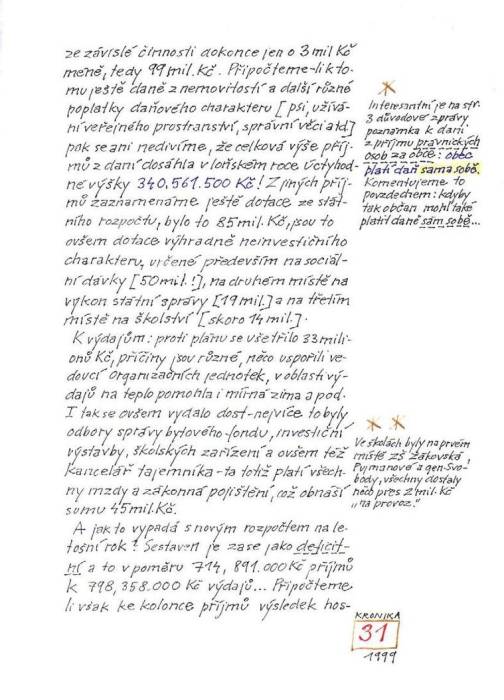 ze závislé činnosti dokonce jen o 3 mil Kč
méně, tedy 99 mil. Kč. Připočteme-li k to-
mu ještě daně z nemovitostí a další různé
poplatky daňového charakteru [psi, užívá-
ní veřejného prostranství, správní věci atd]
pak se ani nedivíme, že celková výše příj-
mů z daní dosáhla v loňském roce úctyhod-
né výšky 340.561.500 Kč! Z jiných příj-
mů zaznamenáme ještě dotace ze stát-
ního rozpočtu, bylo to 85 mil. Kč, jsou to
ovšem dotace výhradně neinvestičního
charakteru, určené především na sociál-
ní dávky [50 mil.!], na druhém místě na
výkon státní správy [19 mil.] a na třetím
místě na školství [skoro 14 mil.].
K výdajům: proti plánu se ušetřilo 33 mili-
onů Kč, příčiny jsou různé, něco uspořili ve-
doucí organizačních jednotek, v oblasti vý-
dajů na teplo pomohla i mírná zima a pod.
I tak se ovšem vydalo dost - nejvíce to byly
odbory správy bytového fondu, investiční
výstavby, školských zařízení a ovšem též
kancelář tajemníka - ta totiž platí všech-
ny mzdy a zákonná pojištění, což obnáší
sumu 45 mil. Kč.
A jak to vypadá s novým rozpočtem na le-
tošní rok? Sestaven je zase jako deficit-
ní a to v poměru 714,891.000 Kč příjmů
k 798,358.000 Kč výdajů... Připočteme-
li však ke kolonce příjmů výsledek hos-
Interesantní je na str.
3 důvodové zprávy
poznámka k dani
z příjmu právnických
osob za obce: obec
platí daň sama sobě.
Komentujeme to
povzdechem: kdyby
tak občan mohl také
platit daně sám sobě...
Ve školách byly na prvém
místě ZŠ Žákovská,
Pujmanové a gen. Svo-
body, všechny dostaly
něco přes 2 mil. Kč
"na provoz."
KRONIKA
31
1999